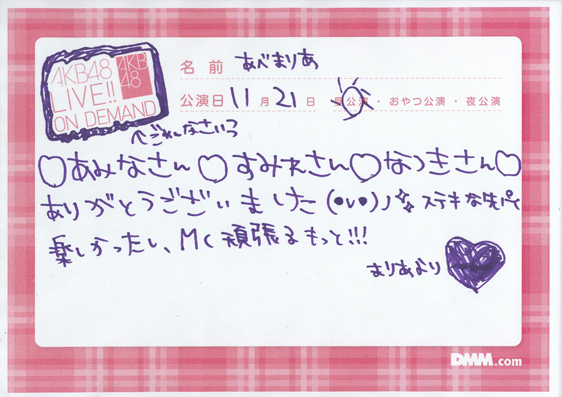 AKB48
LIVE!!
ON DEMAND
AKB
48
名前 あべまりあ
公演日 11月21日 昼公演・おやつ公演・夜公演
♡あみなさん♡すみれさん♡なつきさん♡
ありがとうございました(•v•)ノ ステキな先パイ
楽しかったし、MC頑張るもっと!!!
まりあより♥
DMM.com